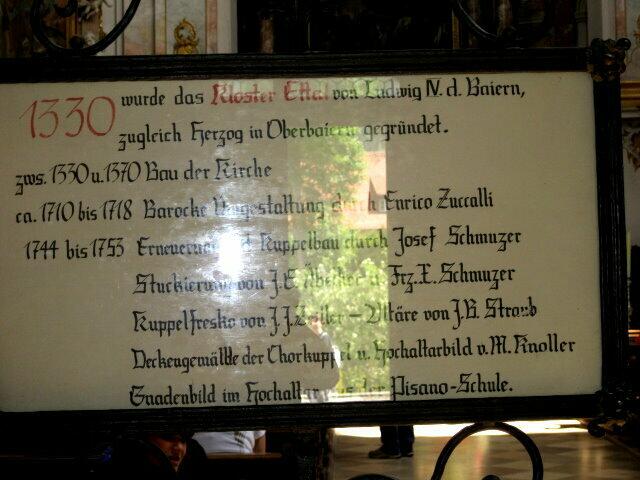 1330 wurde das Kloster Ettal von Ludwig IV. d. Baiern,
zugleich Herzog in Oberbaiern gegründet.
zws. 1330 u. 1370 Bau der Kirche
ca. 1710 bis 1718 Barocke Umgestaltung durch Enrico Zuccalli
1744 bis 1753 Erneuerung u. Kuppelbau durch Josef Schmuzer
Stuckierung von J.G. Übelher u. Frz. X. Schmuzer
Kuppelfresko von J.J. Zeiller – Altäre von J.B. Straub
Deckengemälde der Chorkuppel u. Hochaltarbild v. M. Knoller
Gnadenbild im Hochaltar aus der Pisano-Schule.